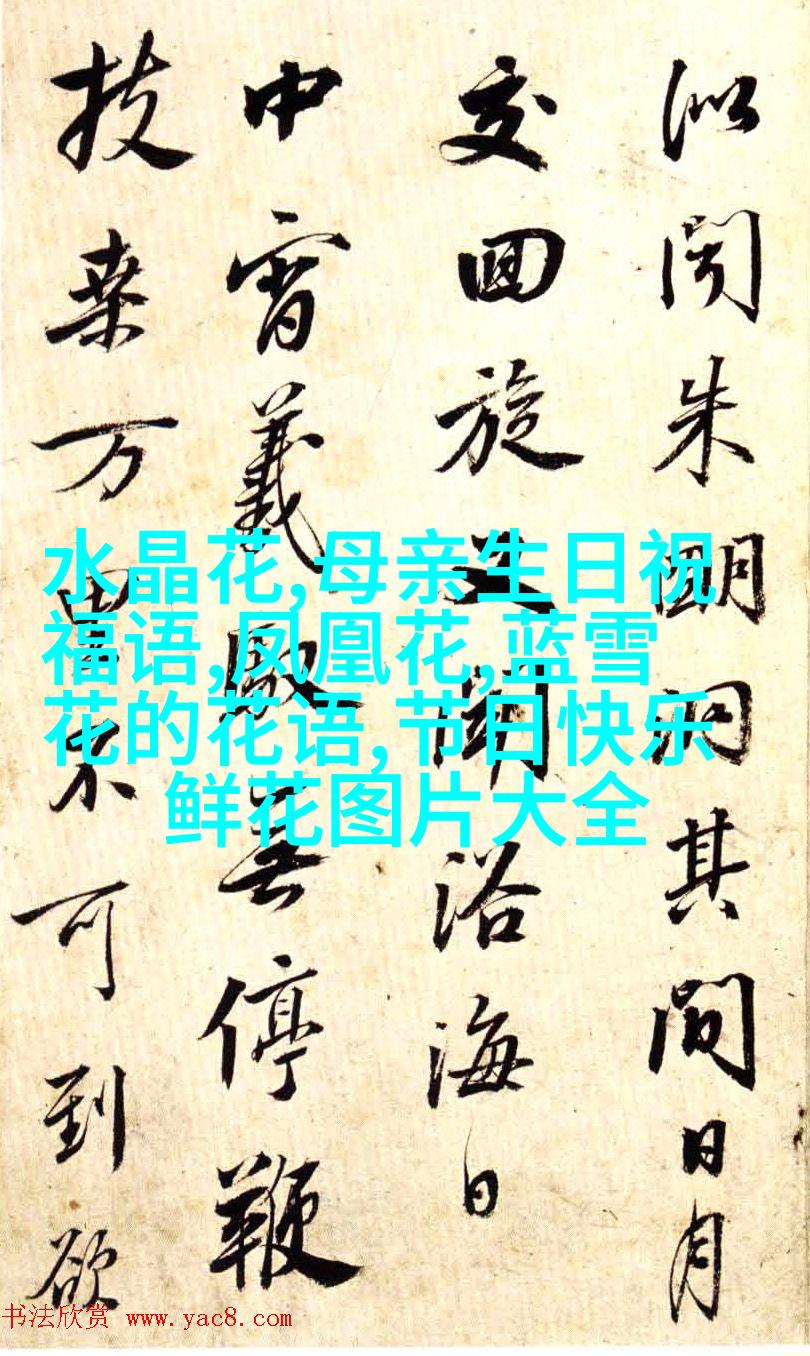 似聞朱明洞其間日月
交回旋又聞浴海日
中宵羲馭無停鞭
扶桒万里不可到欲
水晶花,母亲生日祝
福语,凤凰花,蓝雪
花的花语,节日快乐
鲜花图片大全
书法欣赏 www.yac8.com